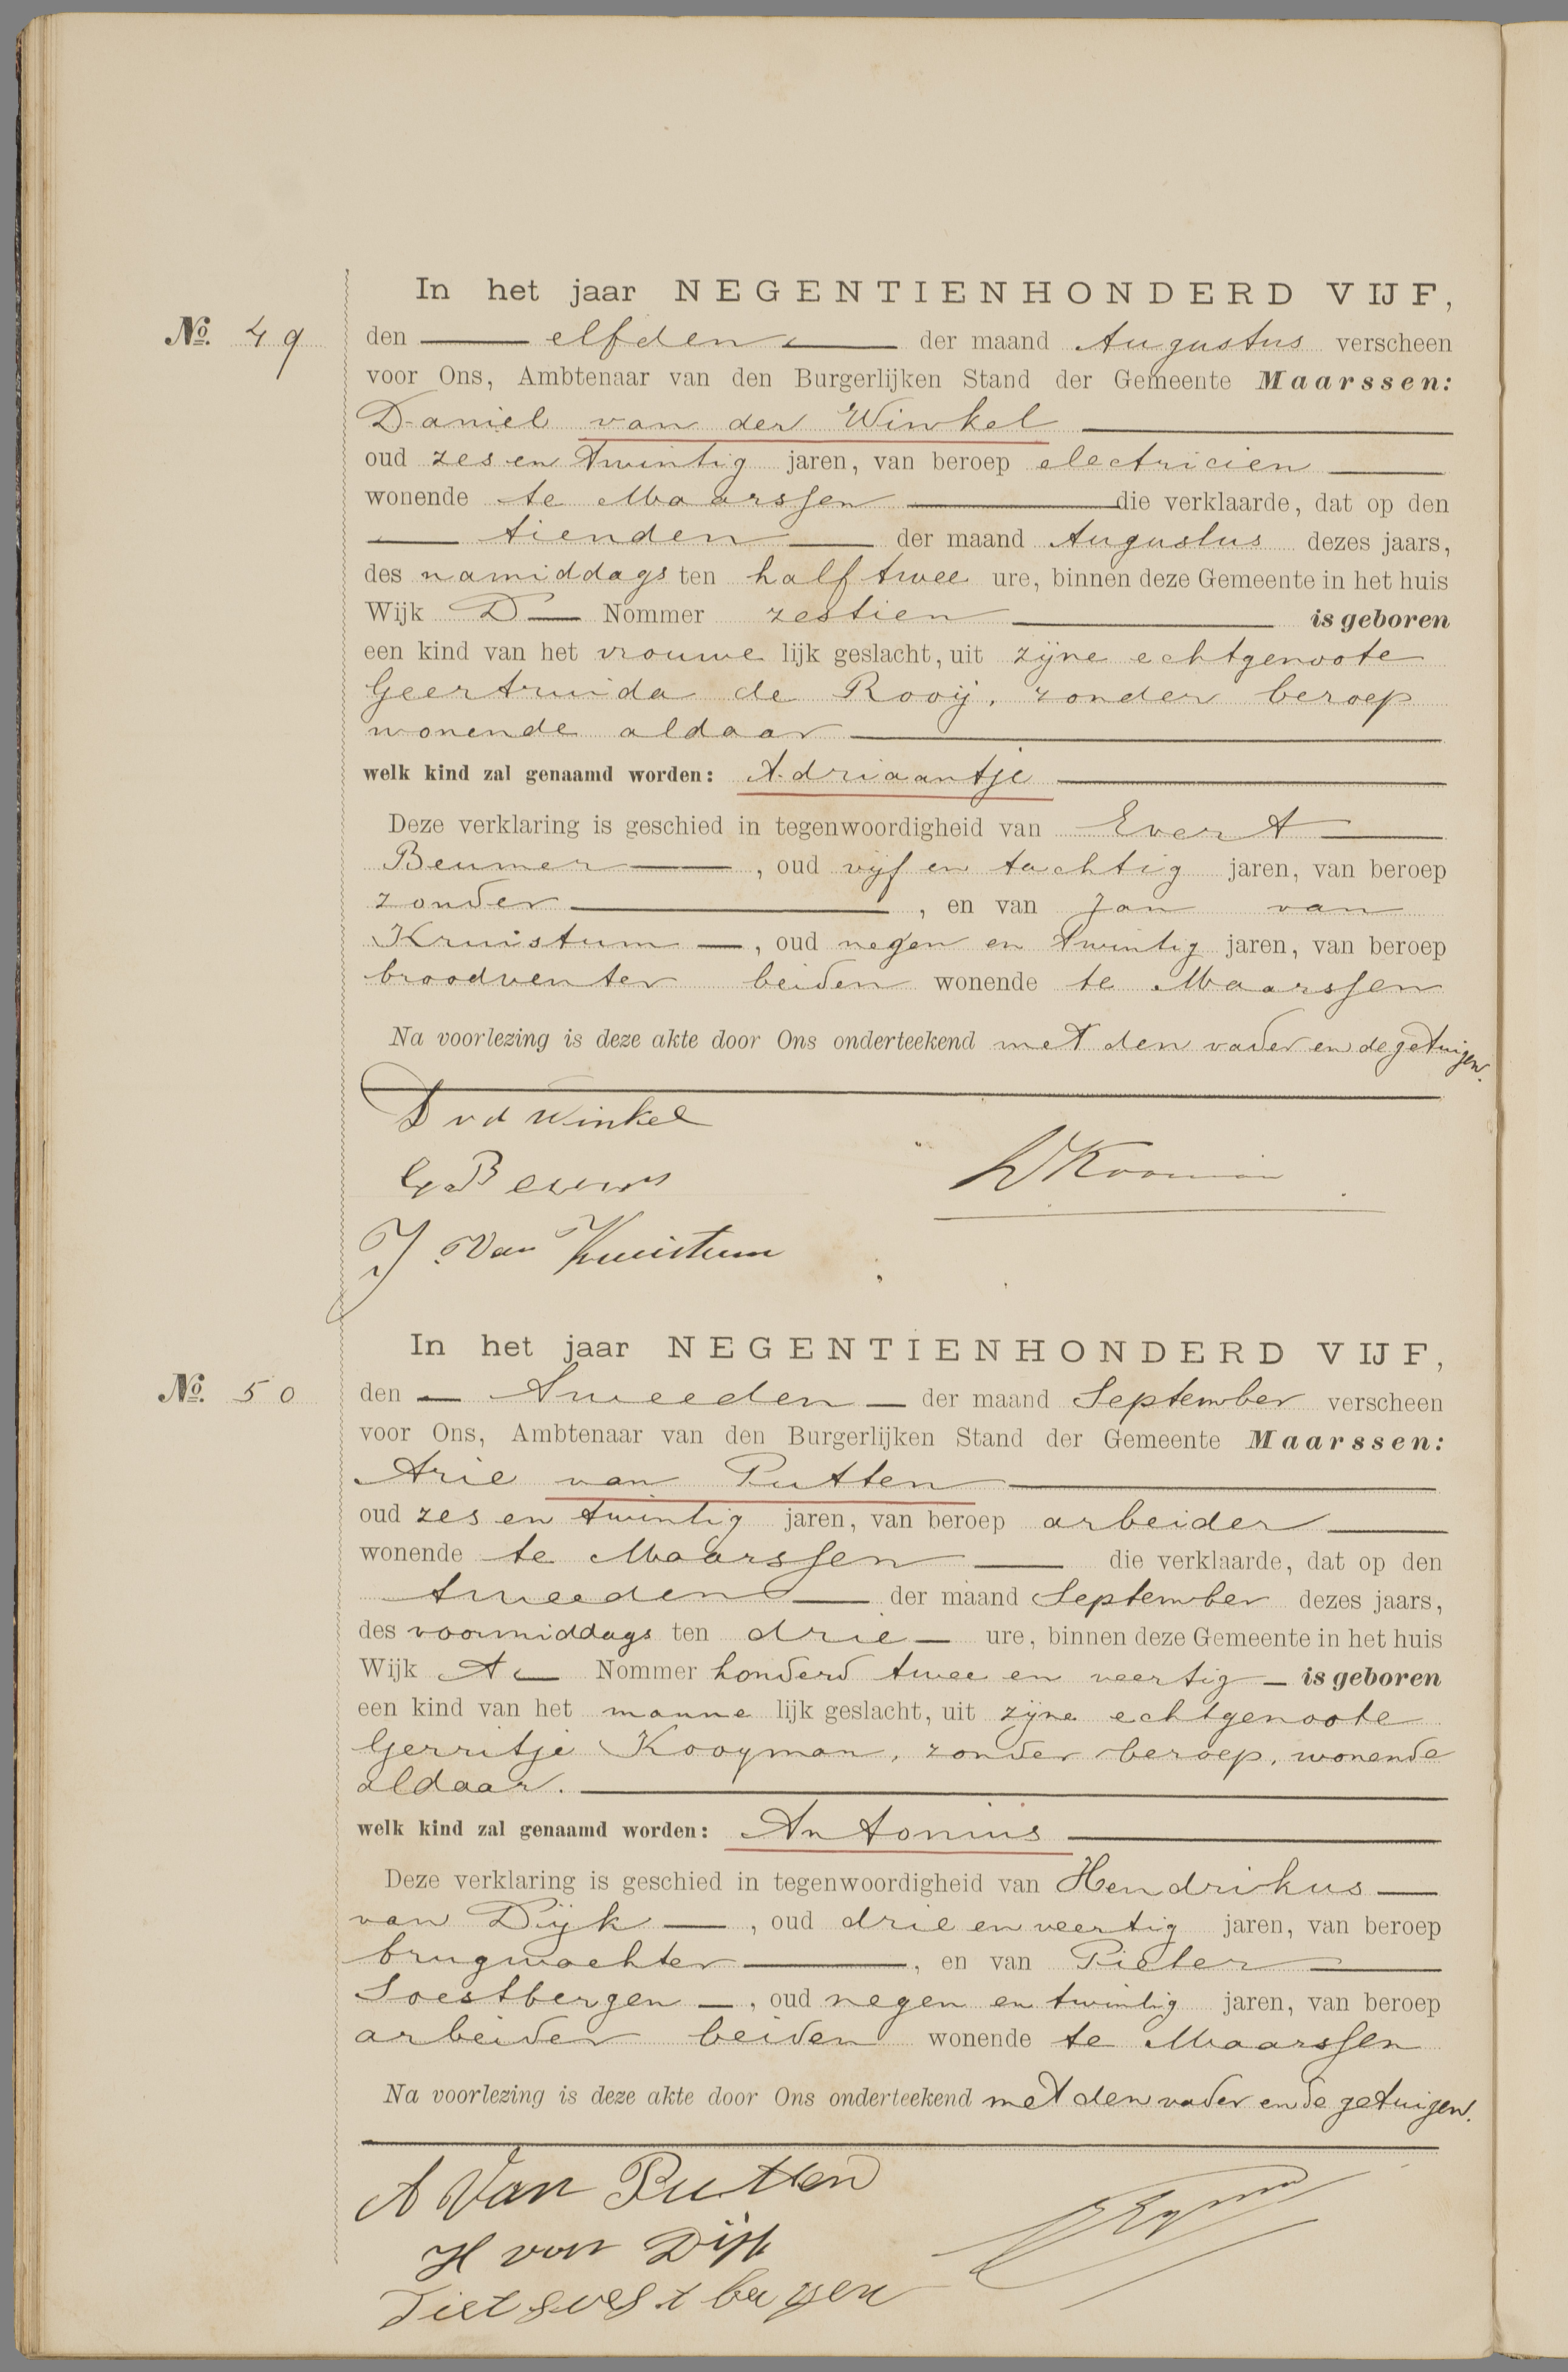 In het jaar NEGENTIENHONDERD VIJF,
No. 49 den elfden der maand Augustus verscheen
voor Ons, Ambtenaar van den Burgerlijken Stand der Gemeente Maarssen:
Daniel van der Winkel
oud zes en twintig jaren, van beroep electricien
wonende te Maarssen die verklaarde, dat op den
tienden der maand Augustus dezes jaars,
des namiddags ten half twee ure, binnen deze Gemeente in het huis
Wijk D Nommer zestien is geboren
een kind van het vrouwelijk geslacht, uit zijne echtgenoote
Geertruida de Rooij, zonder beroep
wonende aldaar
welk kind zal genaamd worden: Adriaantje
Deze verklaring is geschied in tegenwoordigheid van Evert
Beumer, oud vijf en tachtig jaren, van beroep
zonder, en van Jan van
Kruistum, oud negen en twintig jaren, van beroep
broodventer beiden wonende te Maarssen
Na voorlezing is deze akte door Ons onderteekend met den vader en de getuigen.
D v d Winkel
J Van Kruistum
In het jaar NEGENTIENHONDERD VIJF,
No. 50 den tweeden der maand September verscheen
voor Ons, Ambtenaar van den Burgerlijken Stand der Gemeente Maarssen:
Arie van Putten
oud zes en twintig jaren, van beroep arbeider
wonende te Maarssen die verklaarde, dat op den
tweeden der maand September dezes jaars,
des voormiddags ten drie ure, binnen deze Gemeente in het huis
Wijk A Nommer honderd twee en veertig is geboren
een kind van het mannelijk geslacht, uit zijne echtgenoote
Gerritje Kooyman, zonder beroep, wonende
aldaar.
welk kind zal genaamd worden: Antonius
Deze verklaring is geschied in tegenwoordigheid van Hendrikus
van Dijk, oud drie en veertig jaren, van beroep
brugwachter, en van Pieter
Soestbergen, oud negen en twintig jaren, van beroep
arbeider beiden wonende te Maarssen
Na voorlezing is deze akte door Ons onderteekend met den vader en de getuigen.
A Van Putten
H van Dijk